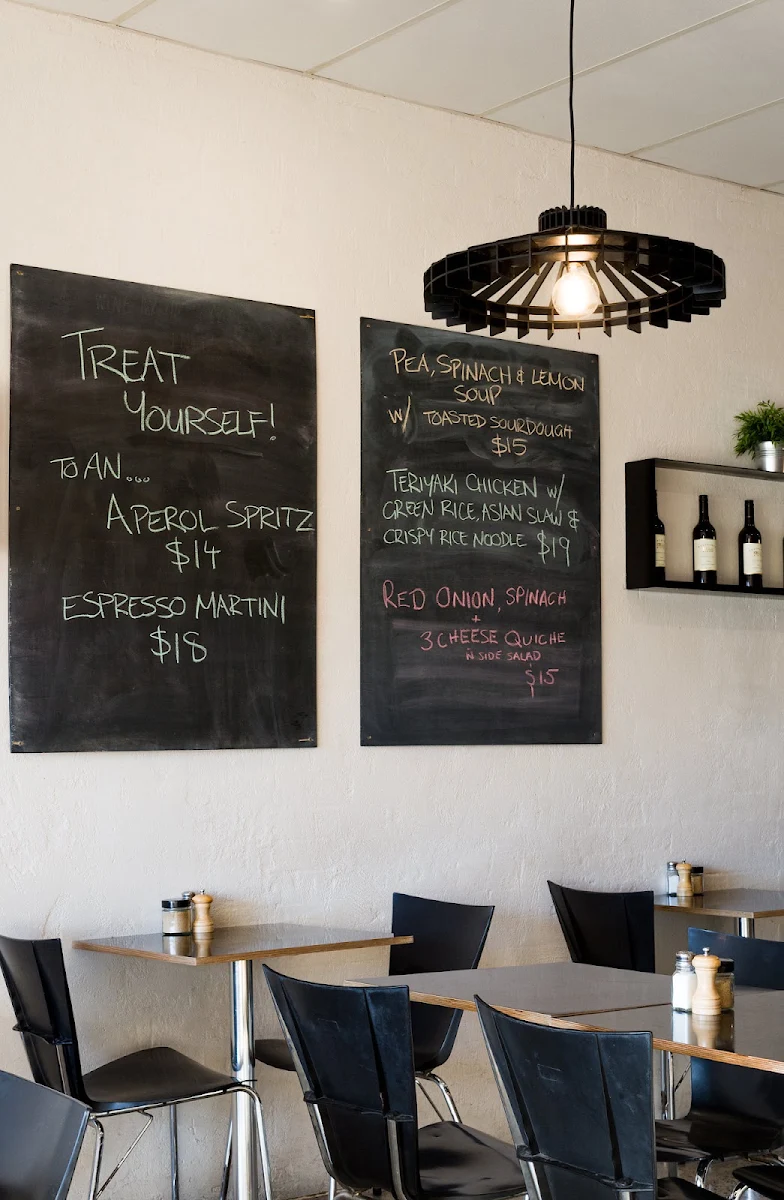 TREAT
YOURSELF!
TO AN...
APEROL SPRITZ
$14
ESPRESSO MARTINI
$18
PEA, SPINACH & LEMON
SOUP
W/ TOASTED SOURDOUGH
$15
TERIYAKI CHICKEN W/
GREEN RICE, ASIAN SLAW &
CRISPY RICE NOODLE $19
RED ONION, SPINACH
+
3 CHEESE QUICHE
N SIDE SALAD
$15